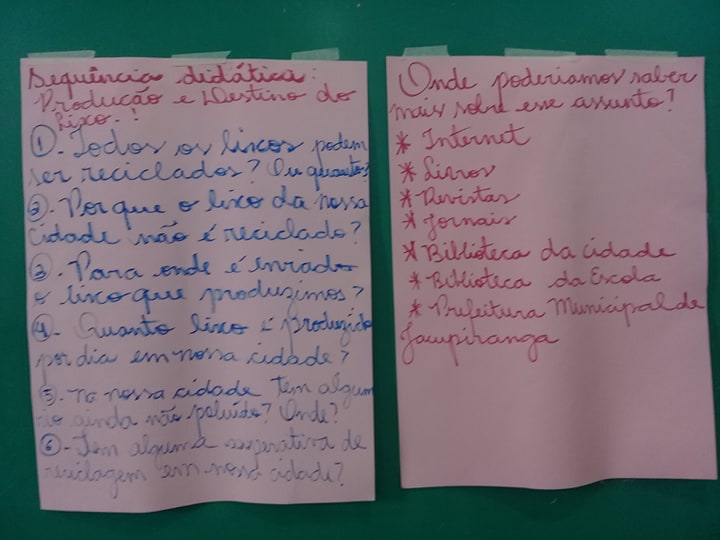 Sequência didática:
Produção e Destino do
Lixo.!
①- Todos os lixos podem
ser reciclados? Ou quantos?
②- Por que o lixo da nossa
cidade não é reciclado?
③- Para onde é enviado
o lixo que produzimos?
④- Quanto lixo é produzido
por dia em nossa cidade?
⑤- Na nossa cidade tem algum
rio ainda não poluído? Onde?
⑥- Tem alguma cooperativa de
reciclagem em nossa cidade?
Onde poderiamos saber
mais sobre esse assunto?
* Internet
* Livros
* Revistas
* Jornais
* Biblioteca da cidade
* Biblioteca da Escola
* Prefeitura Municipal de
Jacupiranga